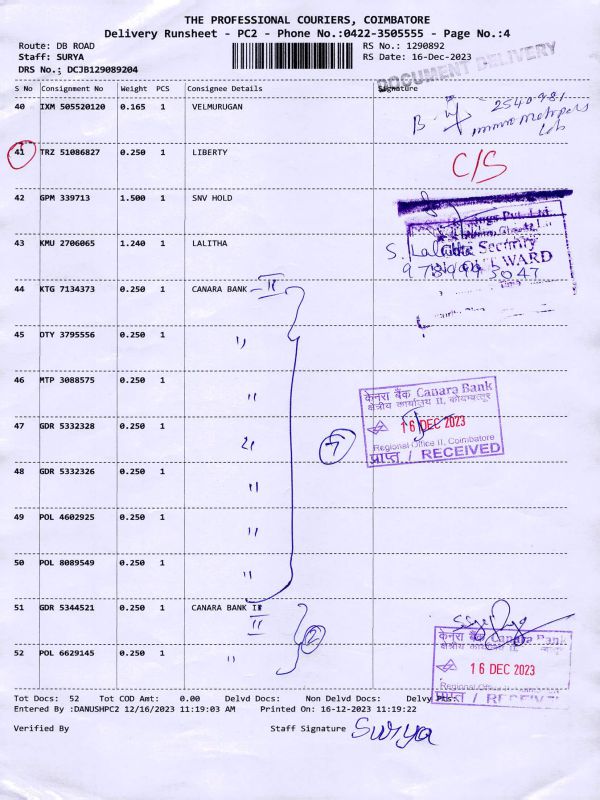 THE PROFESSIONAL COURIERS, COIMBATORE
Delivery Runsheet - PC2 - Phone No.:0422-3505555 - Page No.:4
Route: DB ROAD RS No.: 1290892
Staff: SURYA RS Date: 16-Dec-2023
DRS No.: DCJB129089204
DOCUMENT DELIVERY
S No Consignment No Weight PCS Consignee Details Signature
40 IXM 505520120 0.165 1 VELMURUGAN
2540981
41 TRZ 51086827 0.250 1 LIBERTY C/S
42 GPM 339713 1.500 1 SNV HOLD
43 KMU 2706065 1.240 1 LALITHA
S. Lalitha
Security
WARD
44 KTG 7134373 0.250 1 CANARA BANK - II
45 DTY 3795556 0.250 1 "
46 MTP 3088575 0.250 1 "
केनरा बैंक Canara Bank
क्षेत्रीय कार्यालय II, कोयम्बत्तूर
47 GDR 5332328 0.250 1 "
7
16 DEC 2023
Regional Office II, Coimbatore
प्राप्त / RECEIVED
48 GDR 5332326 0.250 1 "
49 POL 4602925 0.250 1 "
50 POL 8089549 0.250 1 "
51 GDR 5344521 0.250 1 CANARA BANK II
II
2
केनरा बैंक Canara Bank
52 POL 6629145 0.250 1 "
16 DEC 2023
Regional Office II, Coimbatore
प्राप्त / RECEIVED
Tot Docs: 52 Tot COD Amt: 0.00 Delvd Docs: Non Delvd Docs: Delvy
Entered By :DANUSHPC2 12/16/2023 11:19:03 AM Printed On: 16-12-2023 11:19:22
Verified By Staff Signature Surya